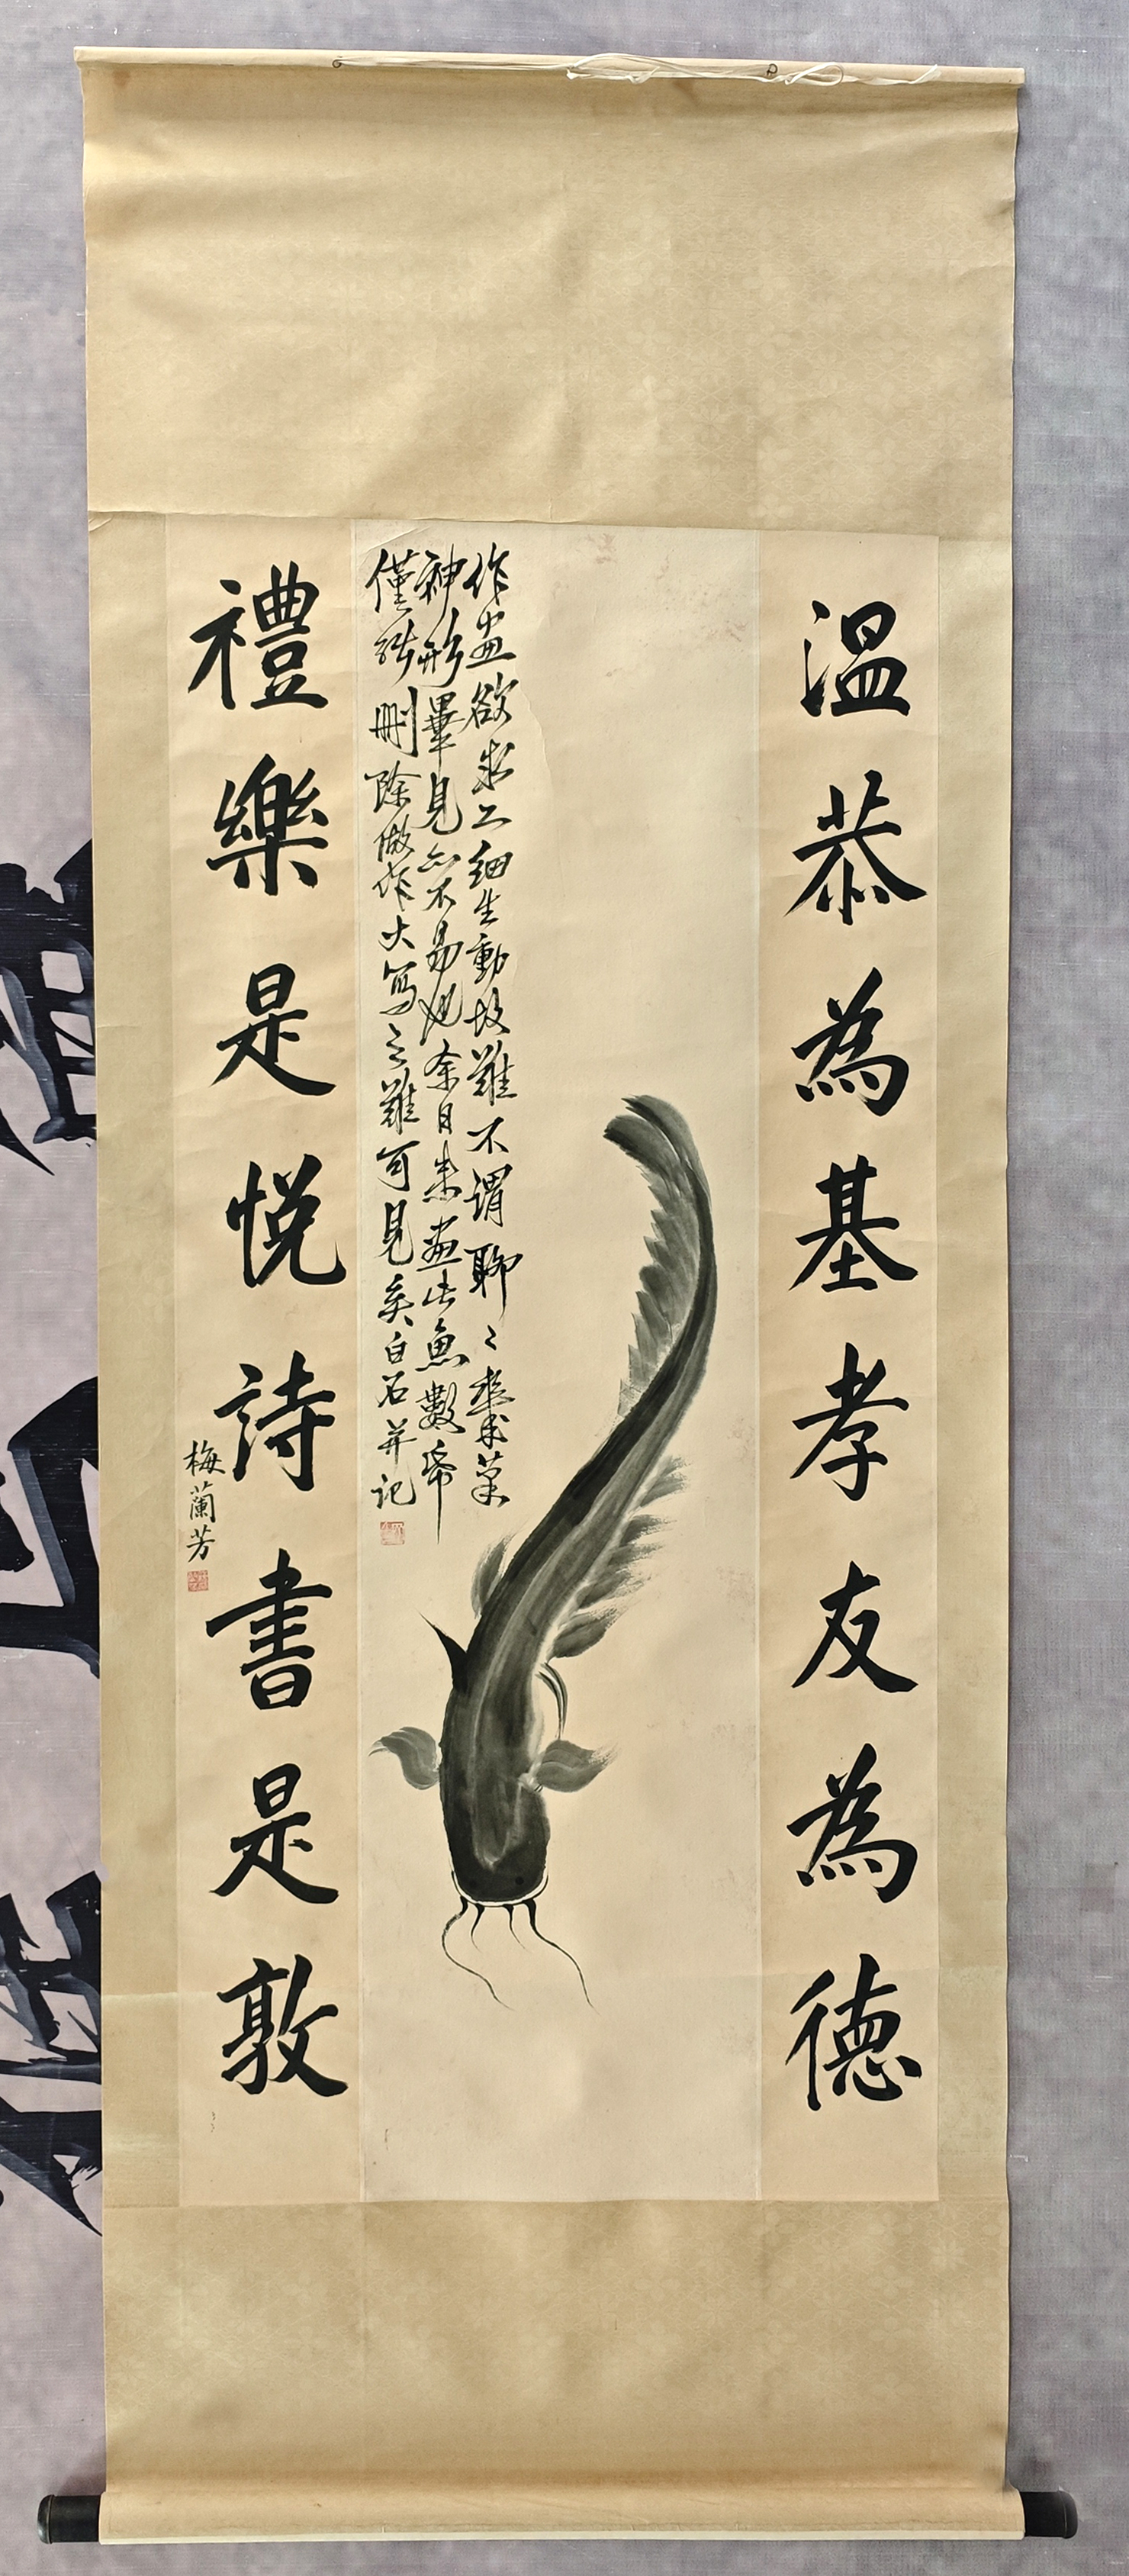 温恭為基孝友為德
作畫欲求工細生動故難不謂聊聊幾筆
神形畢見亦不易也余日來畫此魚數紙
僅能刪除做作大寫之難可見矣白石并記
禮樂是悦詩書是敦
梅蘭芳